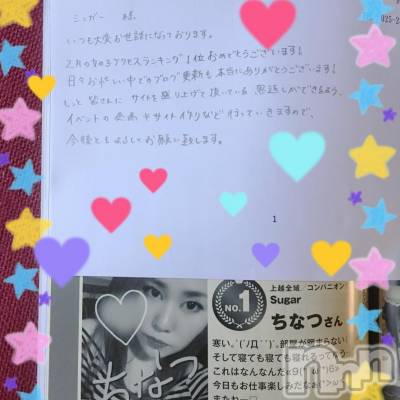 025-2
シュガー 様
いつも大変お世話になっております。
2月のアクセスランキング1位おめでとうございます!
日々お忙しい中でのブログ更新も本当にありがとうございます!
もっと皆さんに サイトを盛り上げて頂いている 恩返しができるよう、
イベントの企画やサイト作りなど行っていきますので、
今後ともよろしくお願い致します。
1
NO.1
上越全域 コンパニオン
Sugar
ちなつさん
寒い。
そして寝ても寝ても寝れるってう
これはなんなんだ
今日もお仕事楽しみだな
またねー♡
ちなつ